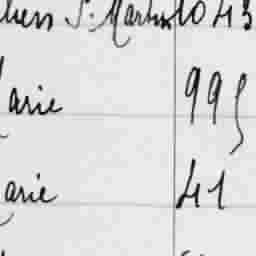 S. Martin 1043
arie 995
arie 41